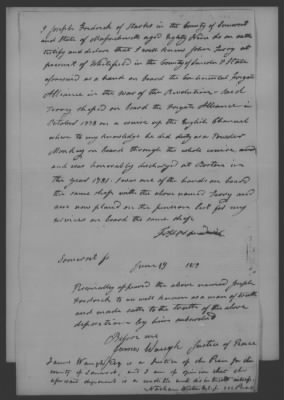 I Joseph Fredrick of Starks in the County of Somerset
and State of Massachusetts aged Eighty four do on oath
testify and declare that I well knew John Tracy at
present of Whitefield in the County of Lincoln & State
aforesaid as a hand on board the Continental Frigate
Alliance in the War of the Revolution - said
Tracy shiped on board the Frigate Alliance in
October 1778 on a cruise up the English Channel
where to my knowledge he did duty as a Powder
Monkey on board through the whole cruise
and was honorably discharged at Boston in
the year 1781. I was one of the hands on board
the same ship with the above named Tracy and
am now placed on the pension list for my
services on board the same ship
Somerset ss June 19 1819
Personally appeared the above named Joseph
Fredrick to me well known as a man of truth
and made oath to the truth of the above
deposition - by him subscribed
Before me
James Waugh Justice of Peace
James Waugh Esq is a Justice of the Peace for the
County of Somerset, and I am of opinion that the
deponent is a credible